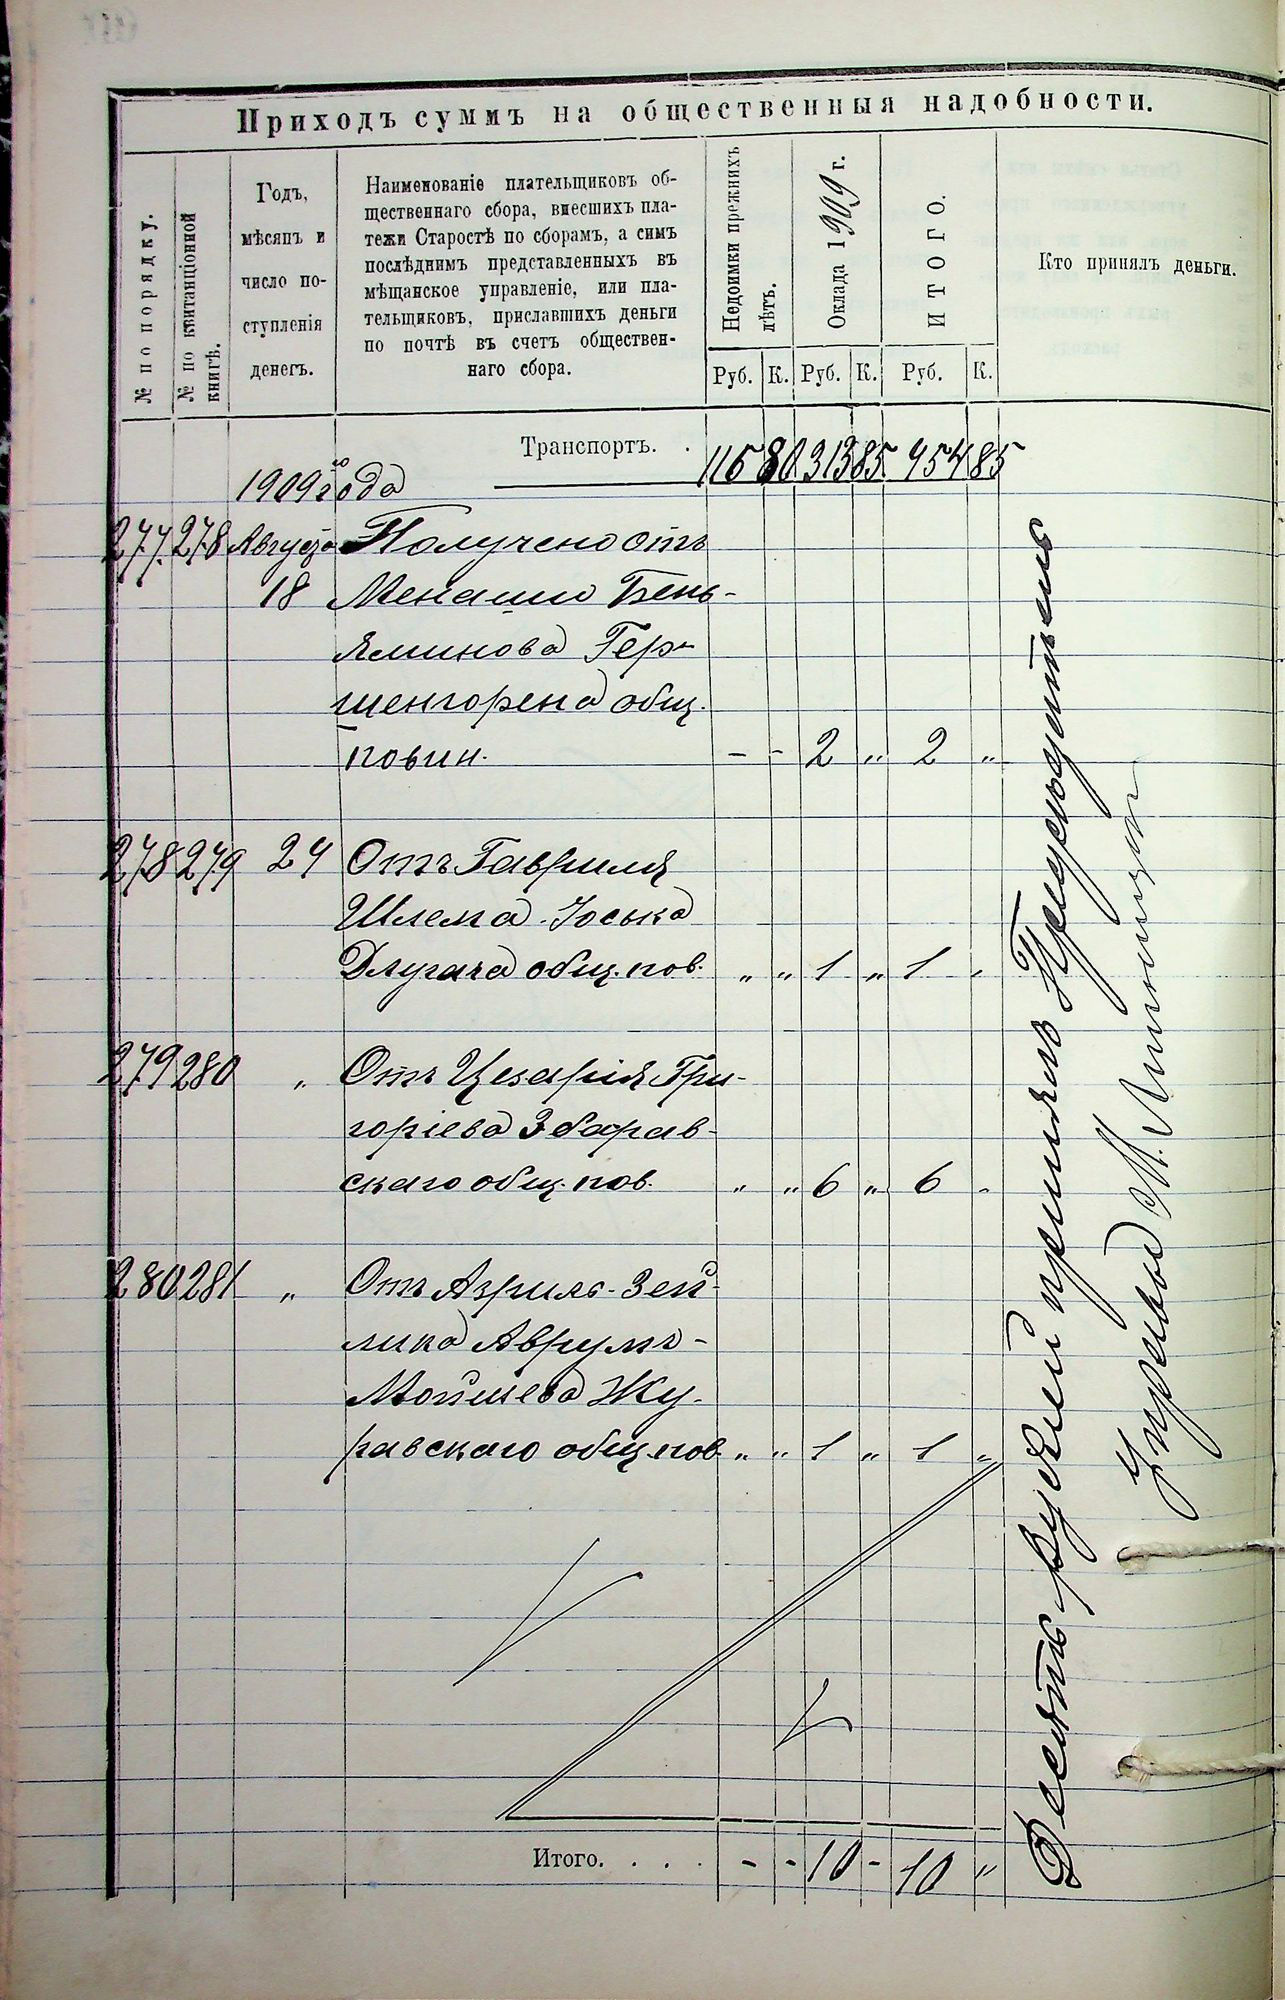 Приходъ суммъ на общественныя надобности.
№ по порядку.
№ по квитанціонной
книгѣ.
Годъ,
мѣсяцъ и
число по-
ступленія
денегъ.
Наименованіе плательщиковъ об-
щественнаго сбора, внесшихъ пла-
тежи Старостѣ по сборамъ, а симъ
послѣднимъ представленныхъ въ
мѣщанское управленіе, или пла-
тельщиковъ, приславшихъ деньги
по почтѣ въ счетъ обществен-
наго сбора.
Недоимки прежнихъ
лѣтъ.
Оклада 1909 г.
ИТОГО.
Кто принялъ деньги.
Руб. К. Руб. К. Руб. К.
Транспортъ. . 80 85 85
1909 го года
277. 278 Августа Получено отъ
18 Менаши Бень-
яминова Гер-
шенгорена общ.
повин. - - 2 „ 2 „
278 279 24 Отъ Гавриля
Шлема-Іоська
Длугача общ. пов. „ „ 1 „ 1 „
279 280 „ Отъ Цезарія Гри-
горіева Збарав-
скаго общ. пов. „ „ 6 „ 6 „
280 281 „ Отъ Азриль-Зей-
лика Аврумъ-
Мойшева Жу-
равскаго общ. пов. „ „ 1 „ 1 „
Итого. . . . - - 10 - 10 „
Десять рублей принялъ Предсѣдатель
Управы М.